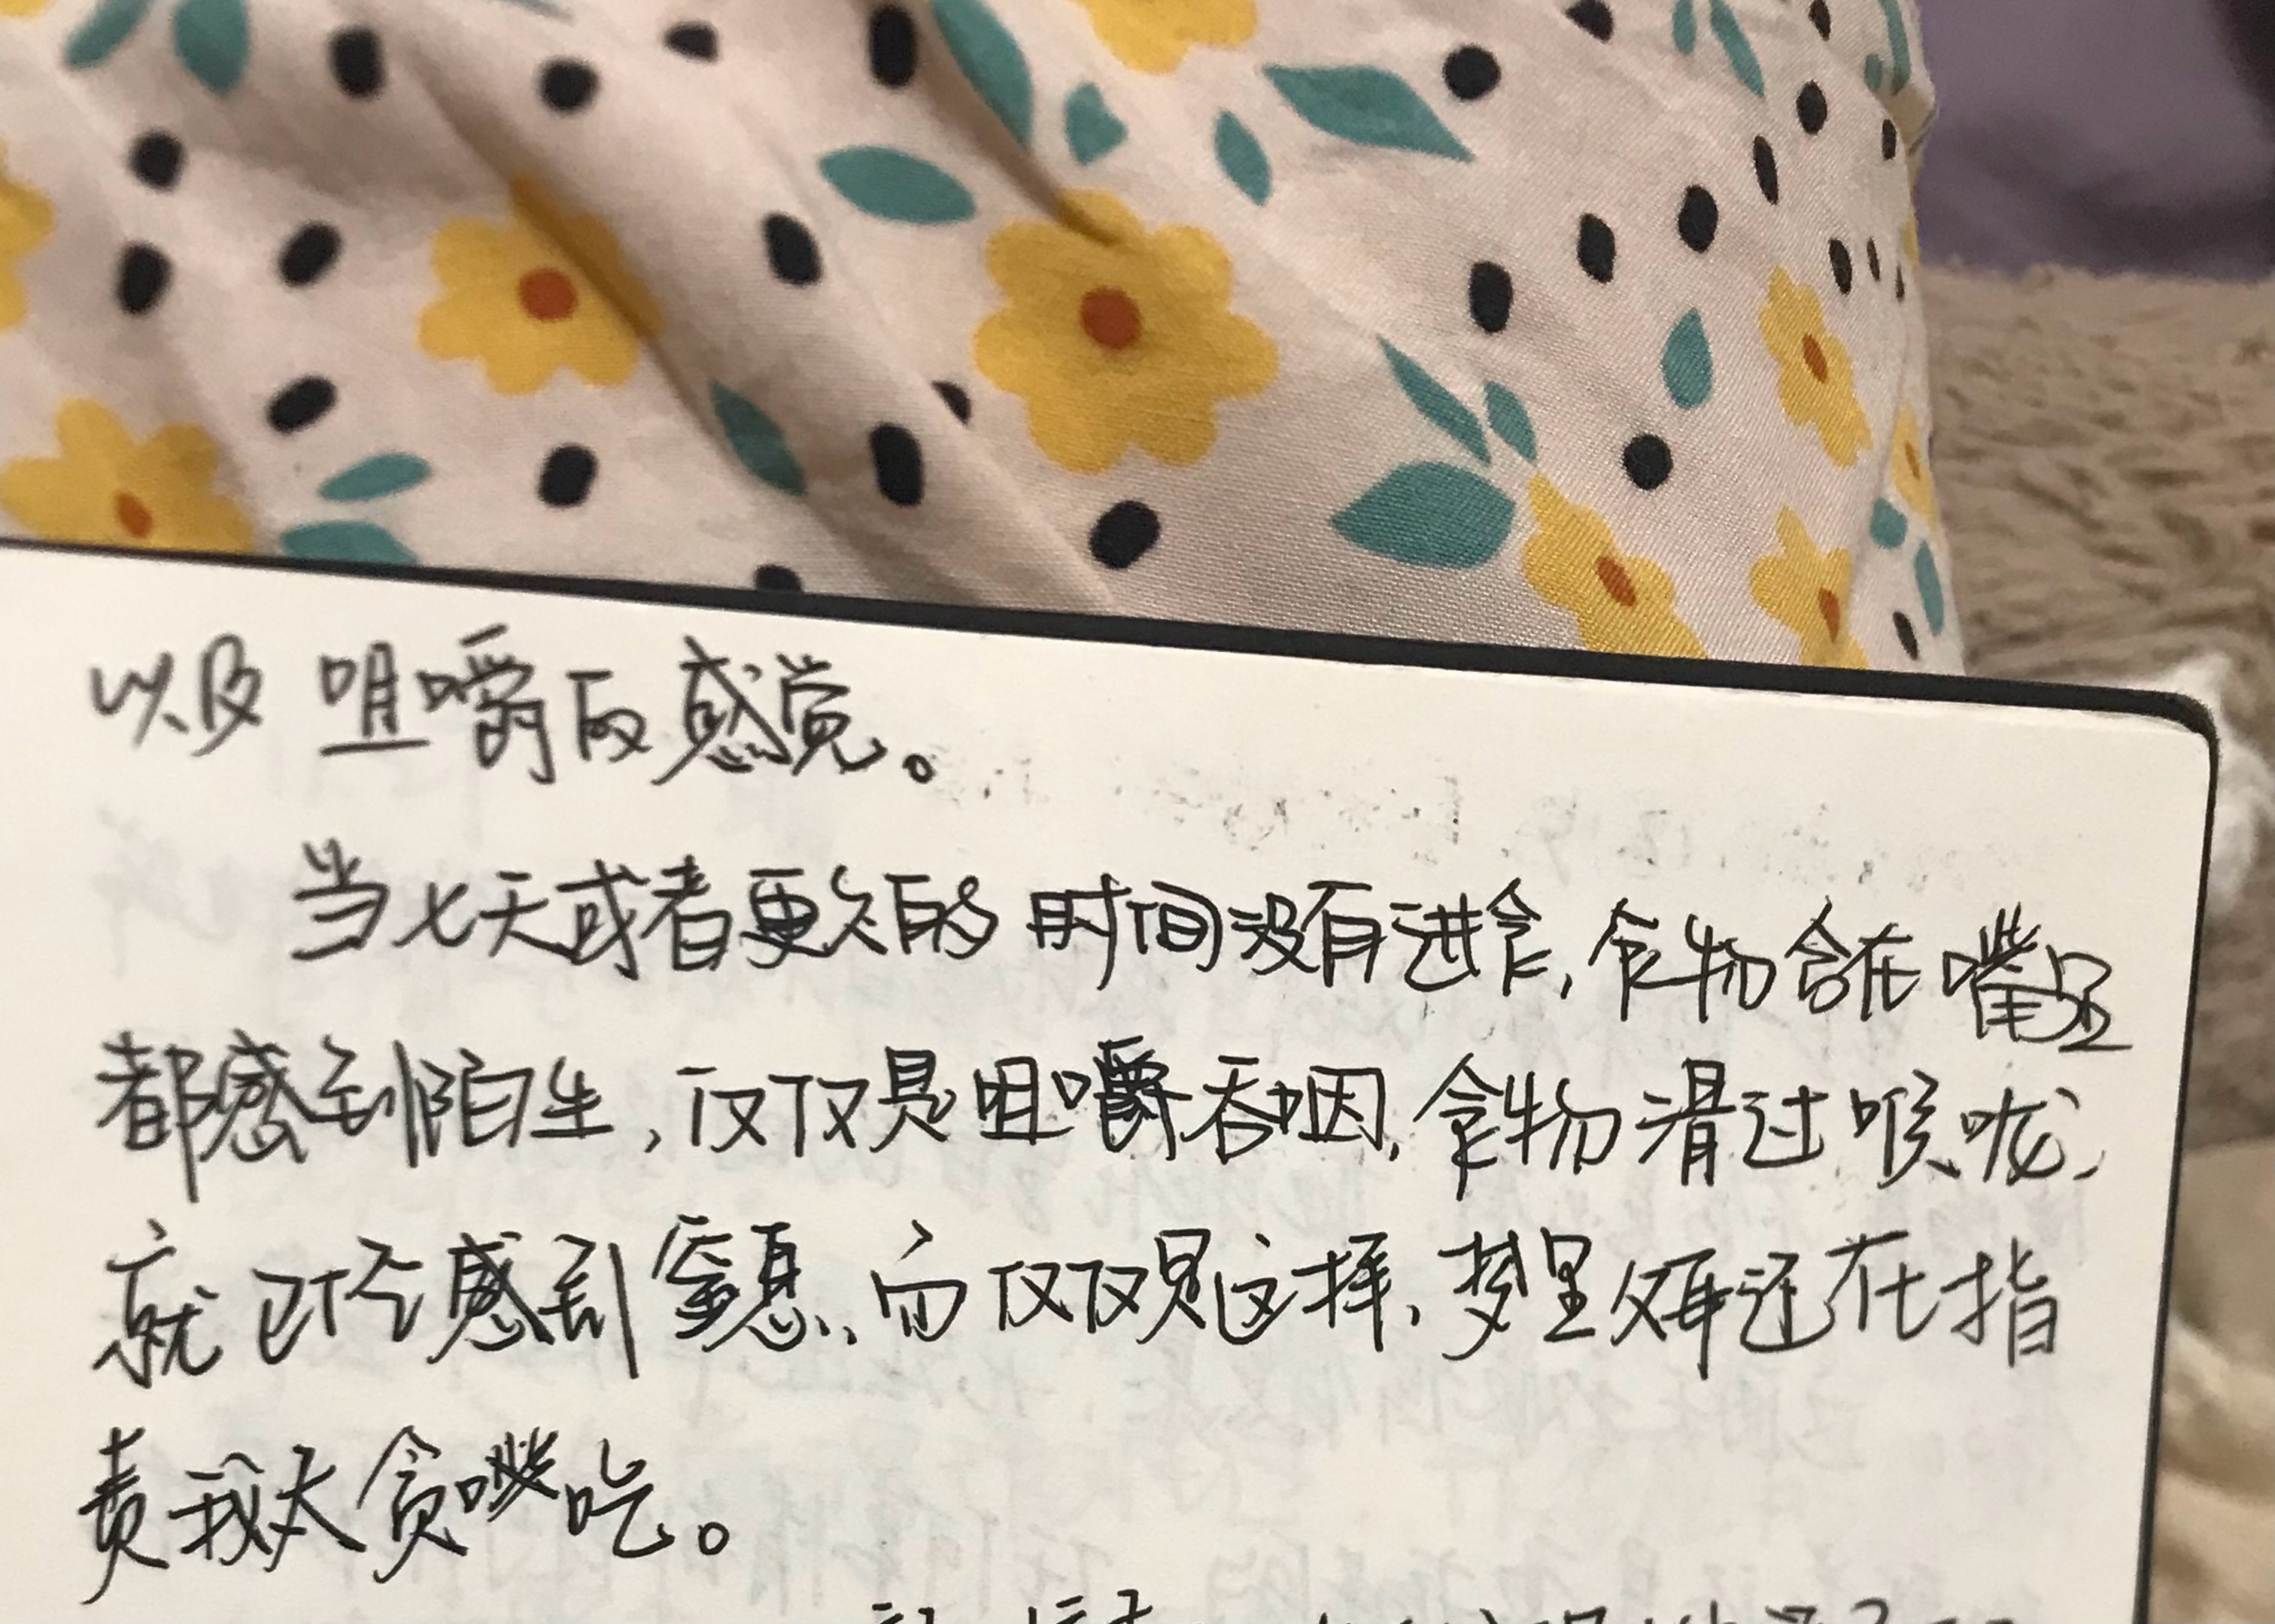 以及咀嚼的感觉。
当七天或者更久的时间没有进食，食物含在嘴里
都感到陌生，仅仅是咀嚼吞咽，食物滑过喉咙，
就已经感到窒息，而仅仅是这样，梦里父母还在指
责我太贪吃。